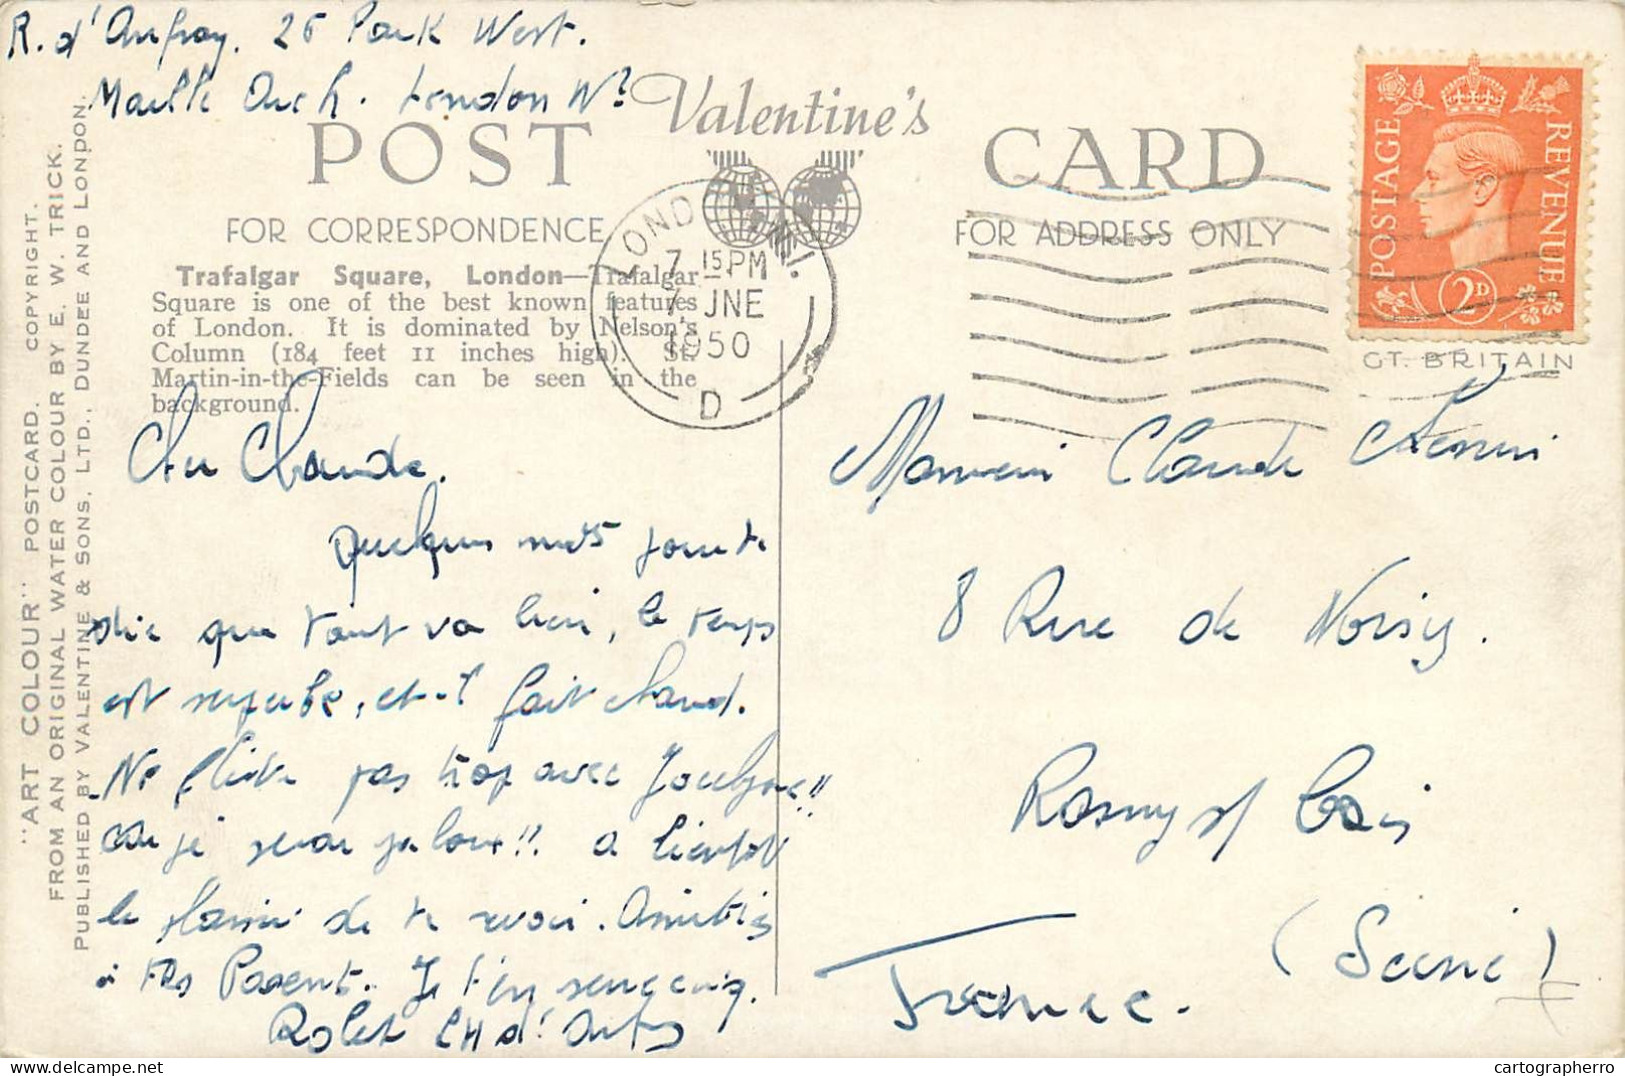 R. d'Aufray. 26 Park West.
Marble Arch. London W2
Valentine's
POST CARD
FOR CORRESPONDENCE
FOR ADDRESS ONLY
Trafalgar Square, London—Trafalgar
Square is one of the best known features
of London. It is dominated by Nelson's
Column (184 feet 11 inches high). St.
Martin-in-the-Fields can be seen in the
background.
LONDON W.
7 15 PM
7 JNE
1950
D
POSTAGE
REVENUE
2D
GT. BRITAIN
"ART COLOUR" POSTCARD. COPYRIGHT.
FROM AN ORIGINAL WATER COLOUR BY E. W. TRICK.
PUBLISHED BY VALENTINE & SONS, LTD., DUNDEE AND LONDON.
Cher Claude.
Quelques mots pour te
dire que tout va bien, le temps
est superbe, et il fait chaud.
Ne flirte pas trop avec Jocelyne!!
car je serai jaloux!! a bientôt
le plaisir de te revoir. Amitiés
à tes Parents. Je t'en serre cinq.
d'Aufray
Monsieur Claude
8 Rue de Noisy.
Rosny s/ Bois
(Seine)
France.
cartographerro